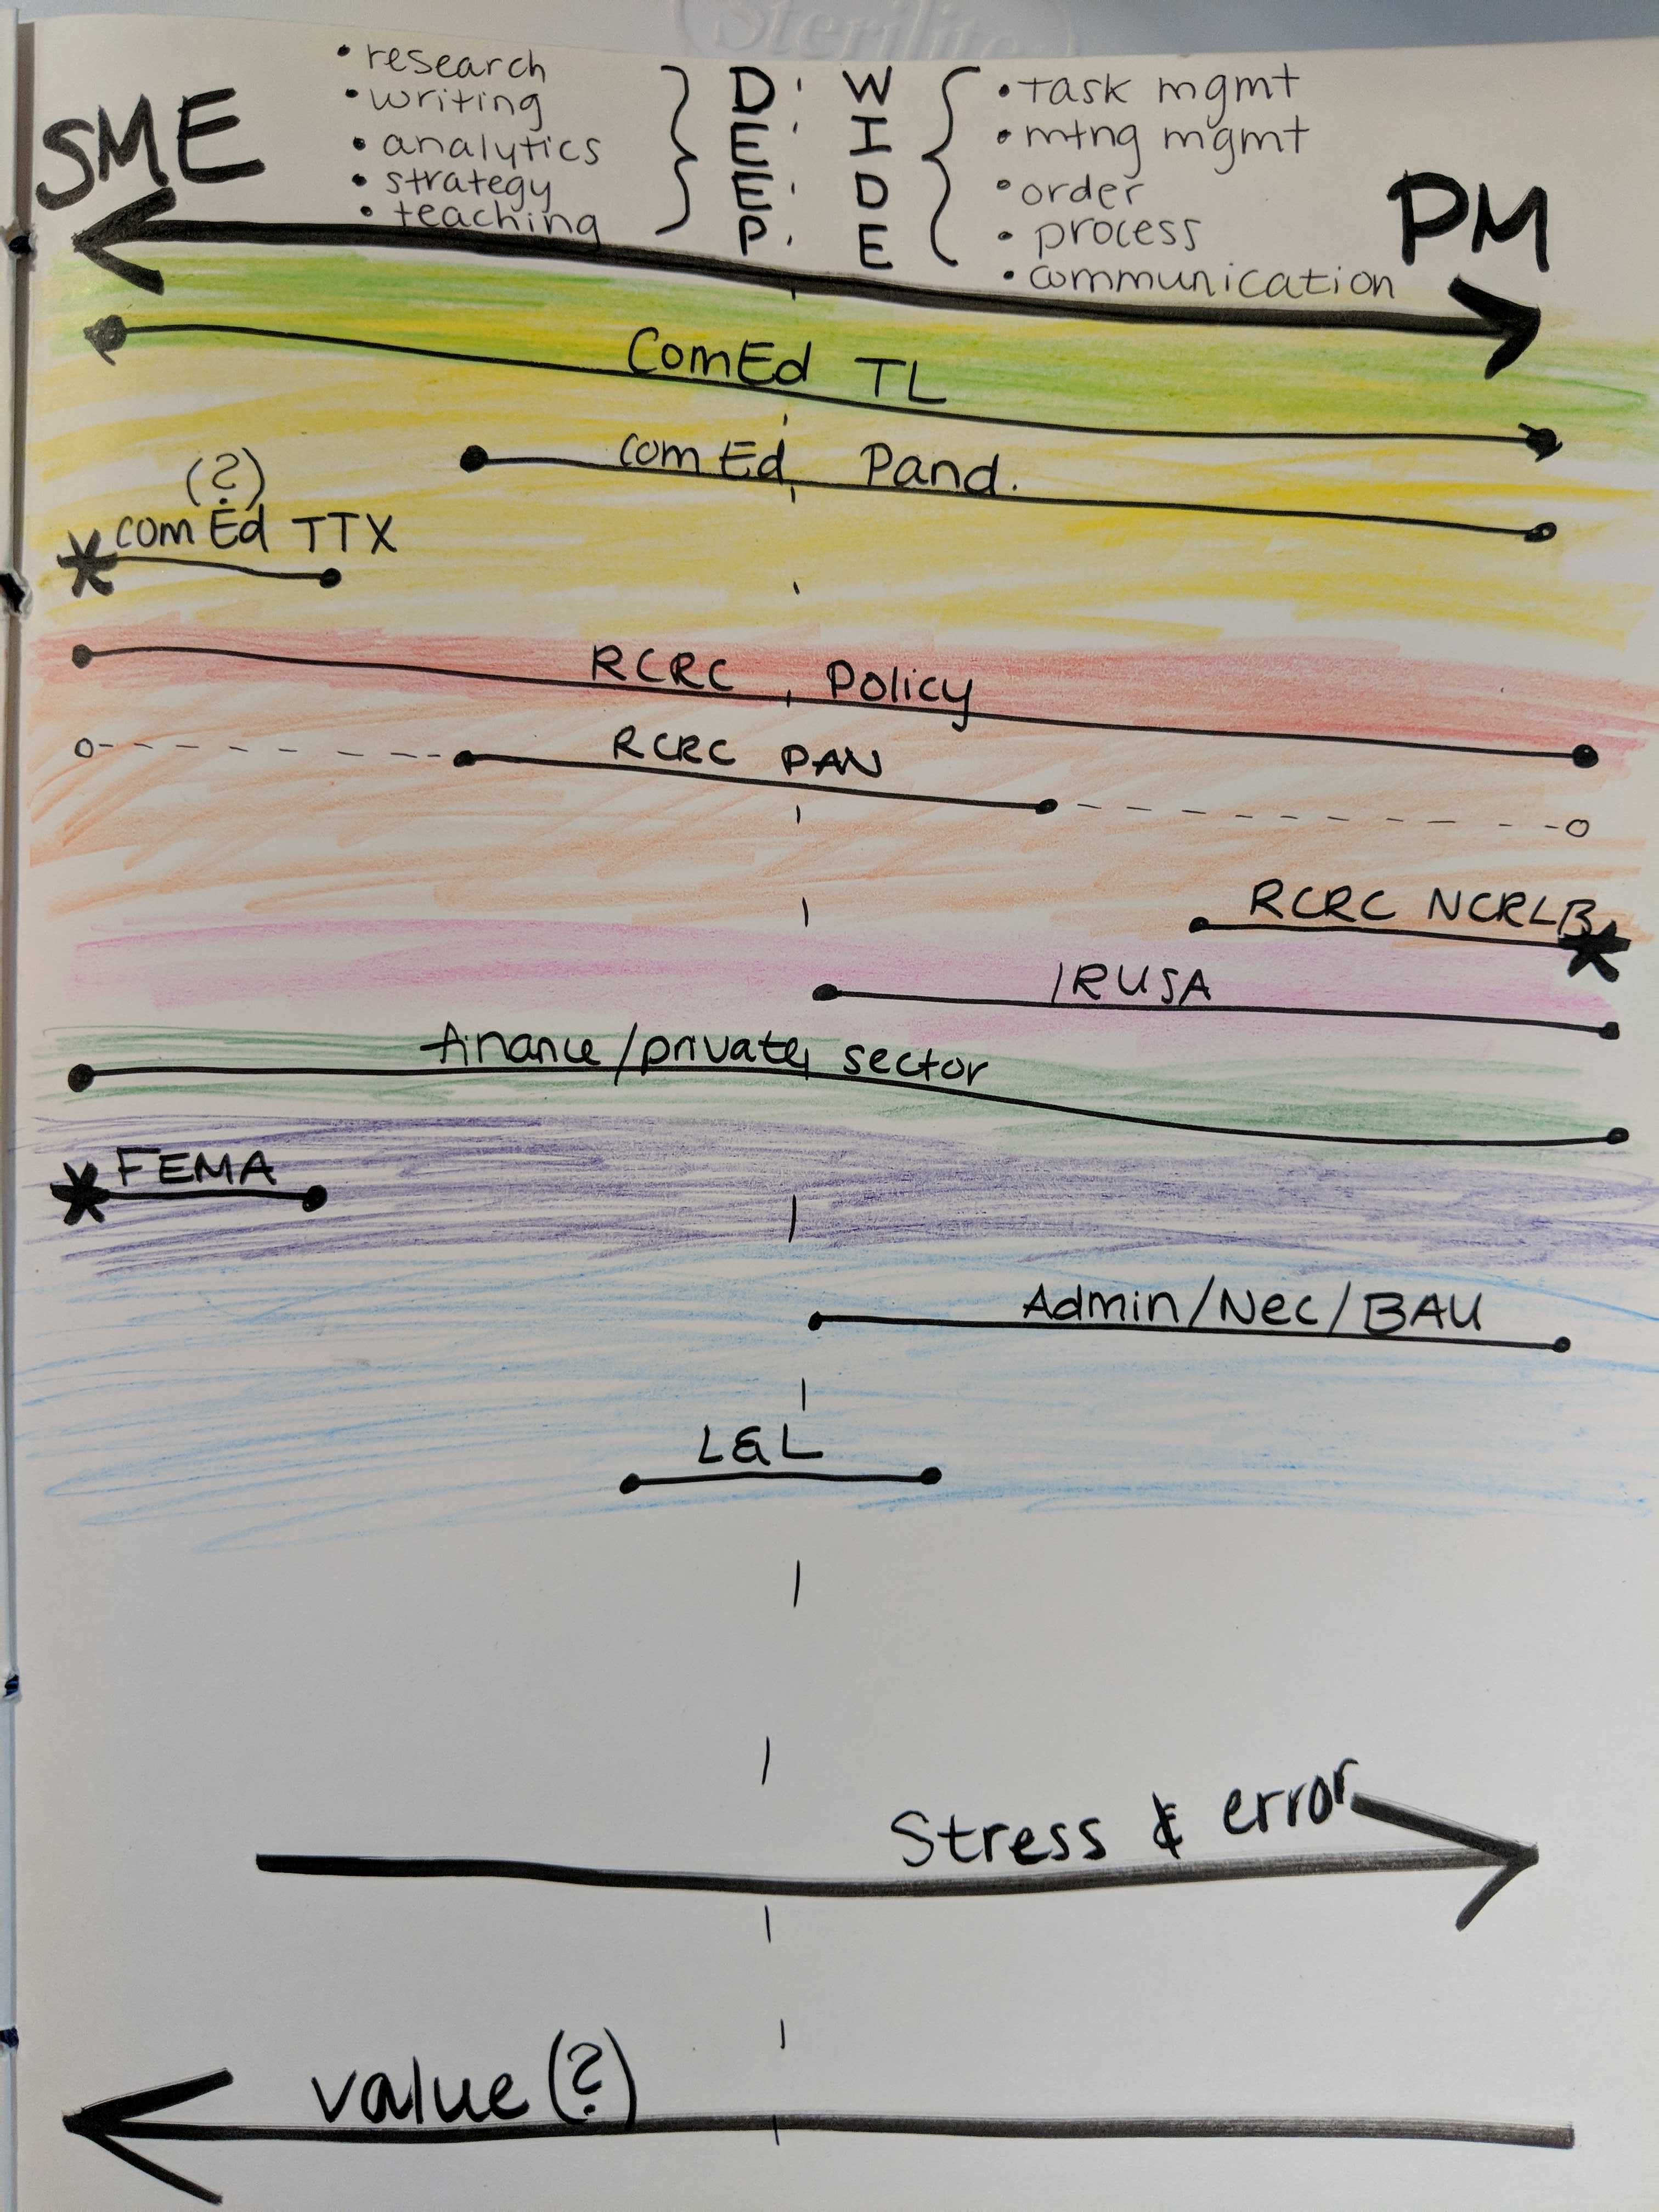 Sterilite
SME
• research
• writing
• analytics
• strategy
• teaching
DEEP
WIDE
• task mgmt
• mtng mgmt
• order
• process
• communication
PM
ComEd TL
ComEd Pand.
(?)
ComEd TTX
RCRC Policy
RCRC PAN
RCRC NCRLB
IRUSA
finance/private sector
FEMA
Admin/Nec/BAU
L&L
Stress & error
value (?)